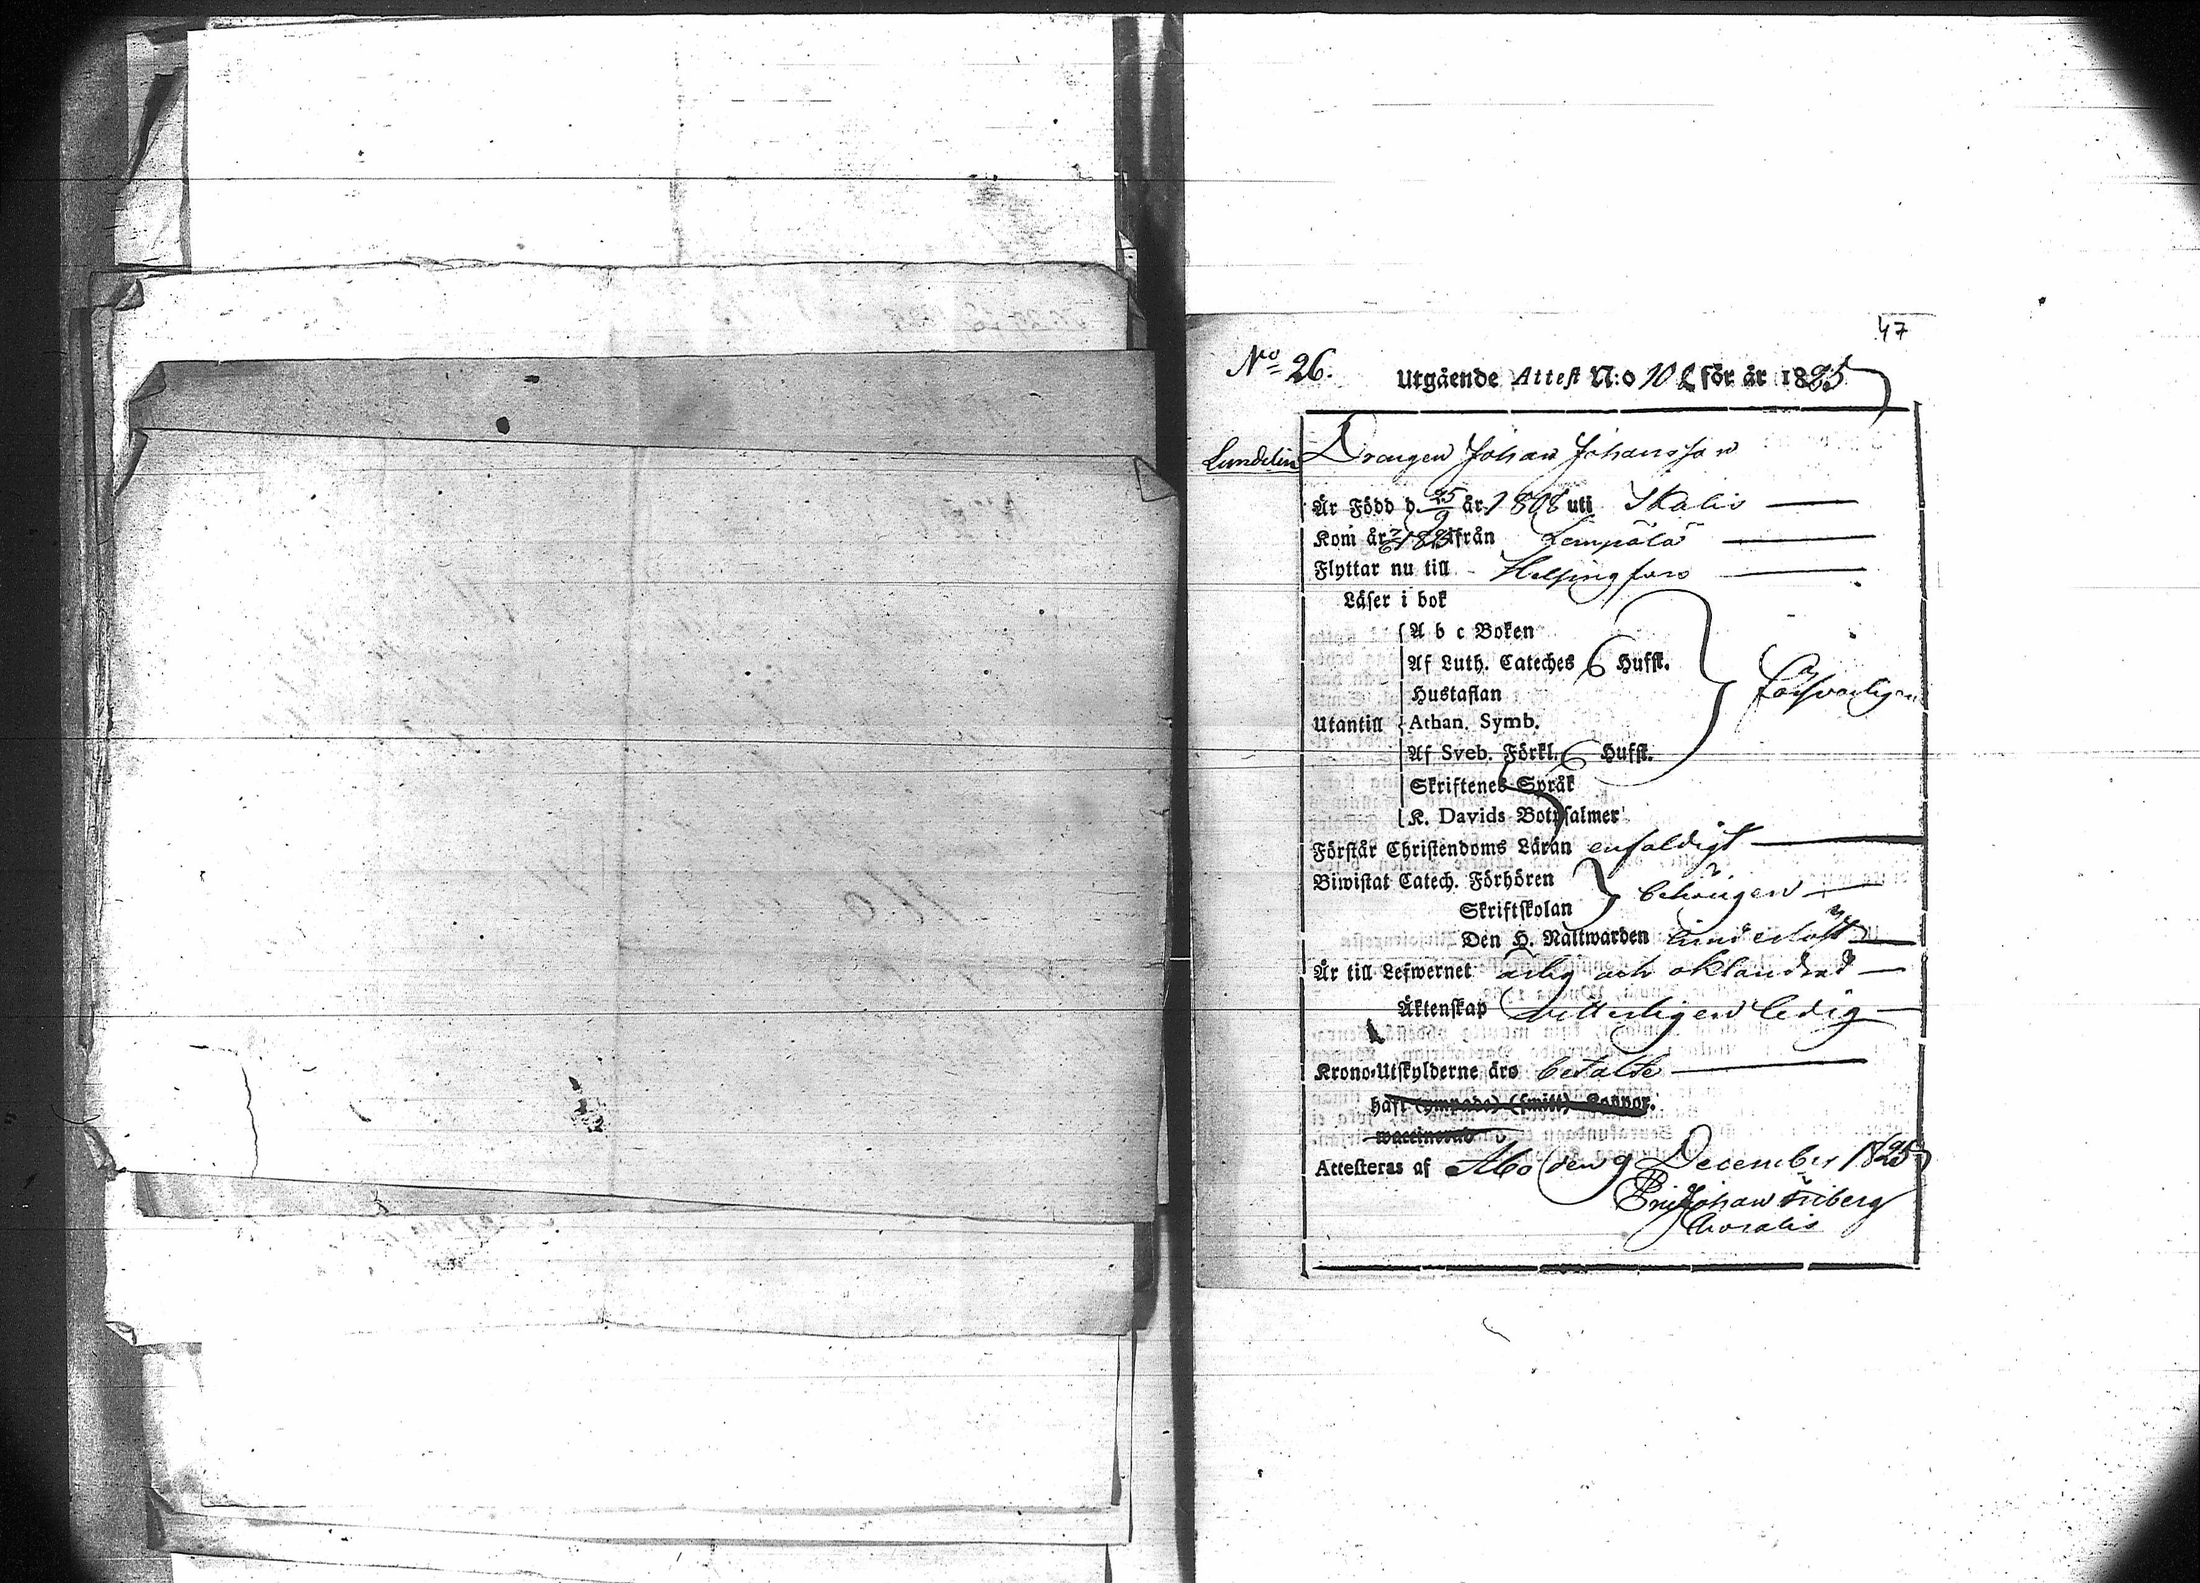 47
No 26. Utgående Attest N:o 102 för år 1825
Lundelin Drängen Johan Johansson
Är Född d. 25/9 år 1808 uti Ikalis
Kom år från Lempälä
Flyttar nu till Helsingfors
Läser i bok
A b c Boken
Af Luth. Cateches 6 Hufst.
Hustaflan
Utantill Athan. Symb. försvarligen
Af Sveb. Förkl. 6 Hufst.
Skriftenes Språk
K. Davids Botpsalmer
Förstår Christendoms Läran enfaldigt
Biwistat Catech. Förhören
Skriftskolan behörigen
Den H. Nattwarden
Är till Lefwernet ärlig och oklandrad
Äktenskap vetterligen ledig
Krono-Utskylderne äro betalde
haft (ympade) (smitt) Koppor.
waccinerad
Attesteras af Åbo den 9 December 1825
Eric Johan